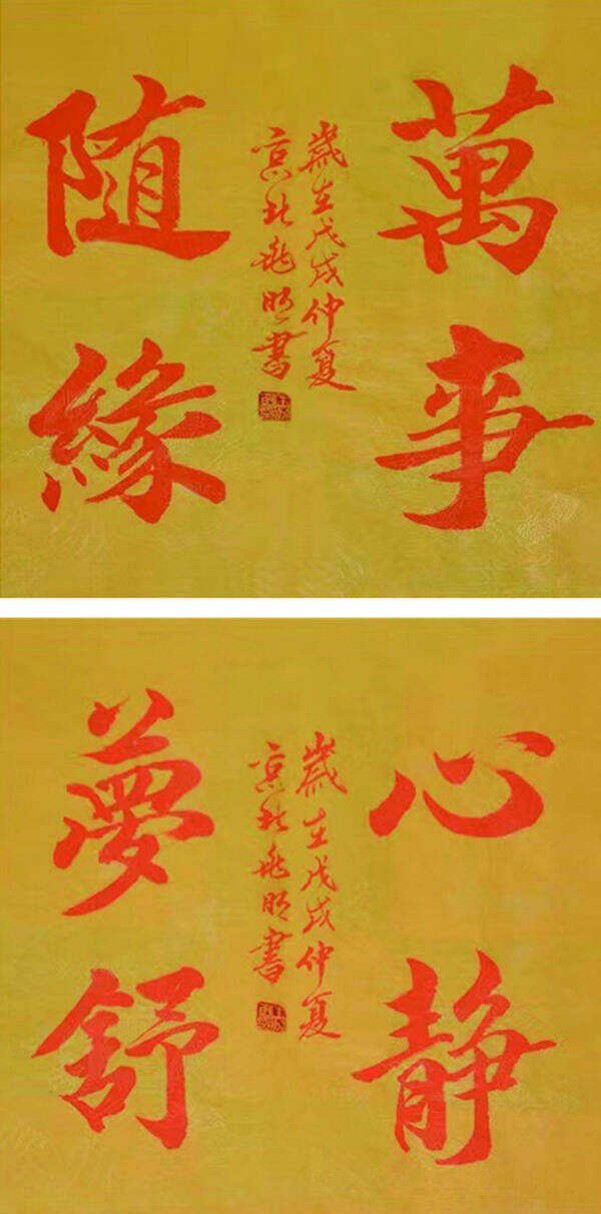 萬事
随緣
歲在戊戌仲夏
京北兆明書
心静
夢舒
歲在戊戌仲夏
京北兆明書